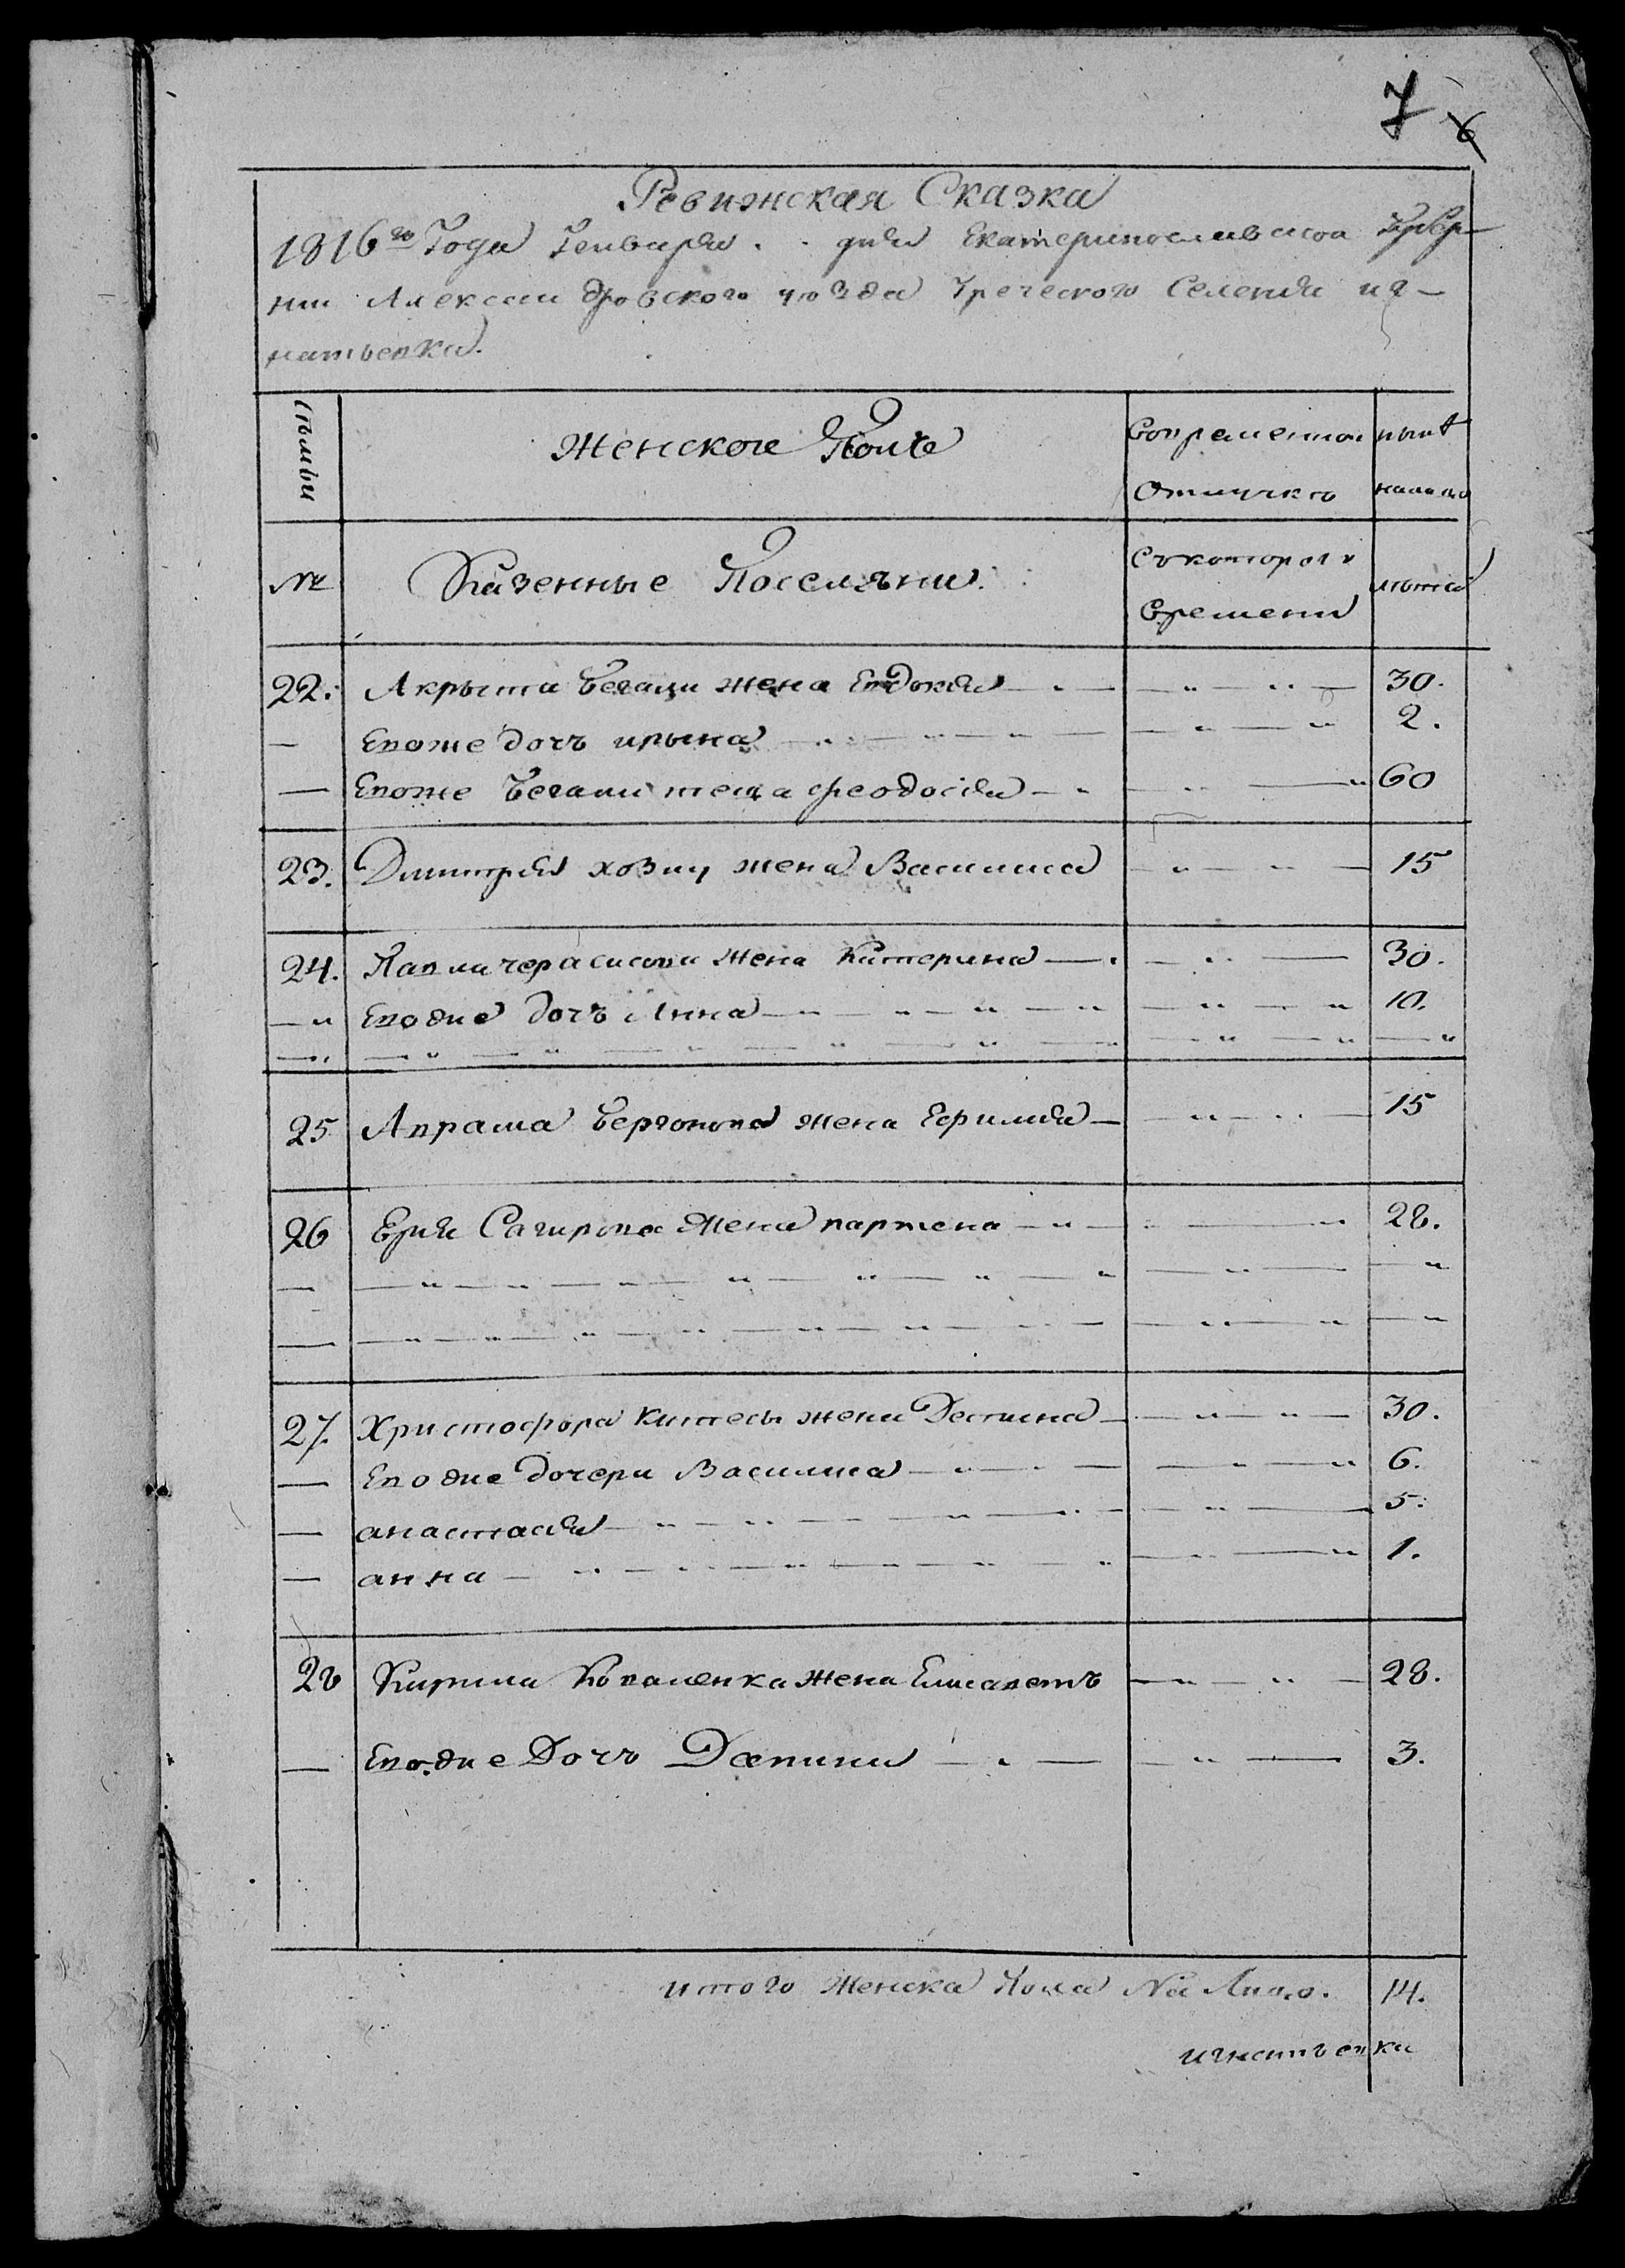 7 6
Ревижская Сказка
1816го Года Генваря . . дня Екатеринославской Губер-
нии Александровского уюзда Греческого Селения иг-
натьевка.
Семьи Женскогѡ Пола Вовременной ныне
Отлучке налицо
№ Казенные Поселяни Скоторого лета
Времени
22. Акрыта бегаци жена Евдокия 30.
— Евоже дочъ ирына 2.
— Евоже бегаци теща феодосия 60
23. Дмитрия хозму жена Василиса 15
24. Павла жена Катерина 30.
Евоже дочъ Анна 10.
25 Аврама жена Ефимия 15
26 Ерия Сагирова Жена партена 28.
27. Христофора жена Деспина 30.
— Евоже дочери Василиса 6.
— анастасия 5.
— анна 1.
28 Кирила Коваленка Жена Елисаветъ 28.
— Евоже Дочъ 3.
итого Женска Пола На Лицо. 14.
игнатьевки